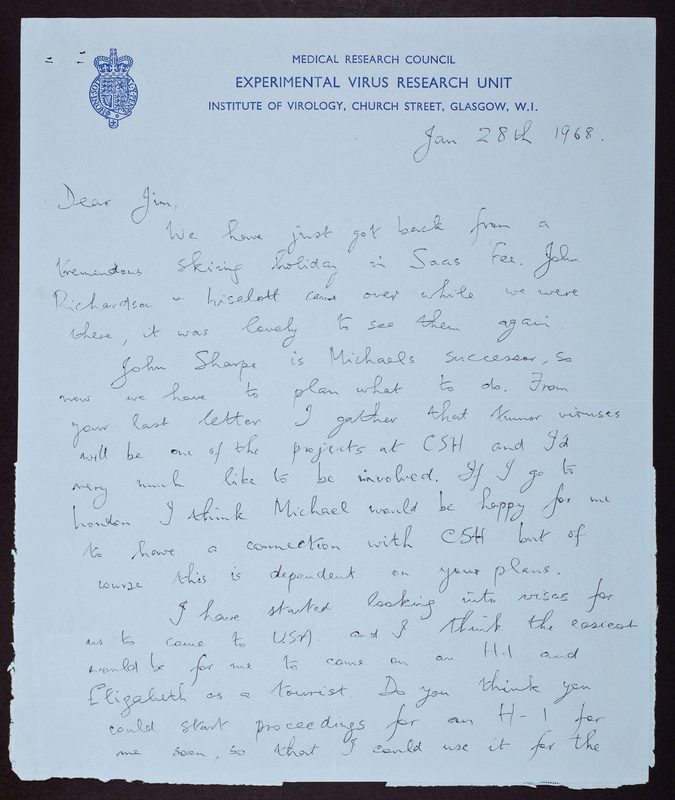 MEDICAL RESEARCH COUNCIL
EXPERIMENTAL VIRUS RESEARCH UNIT
INSTITUTE OF VIROLOGY, CHURCH STREET, GLASGOW, W.1.
Jan 28th 1968.
Dear Jim,
We have just got back from a
tremendous skiing holiday in Saas Fee. John
Richardson & Liselott came over while we were
there, it was lovely to see them again.
John Sharpe is Michaels successor, so
now we have to plan what to do. From
your last letter I gather that tumor viruses
will be one of the projects at CSH and I'd
very much like to be involved. If I go to
London I think Michael would be happy for me
to have a connection with CSH but of
course this is dependent on your plans.
I have started looking into visas for
us to come to USA and I think the easiest
would be for me to come on an H-1 and
Elizabeth as a tourist. Do you think you
could start proceedings for an H-1 for
me soon, so that I could use it for the